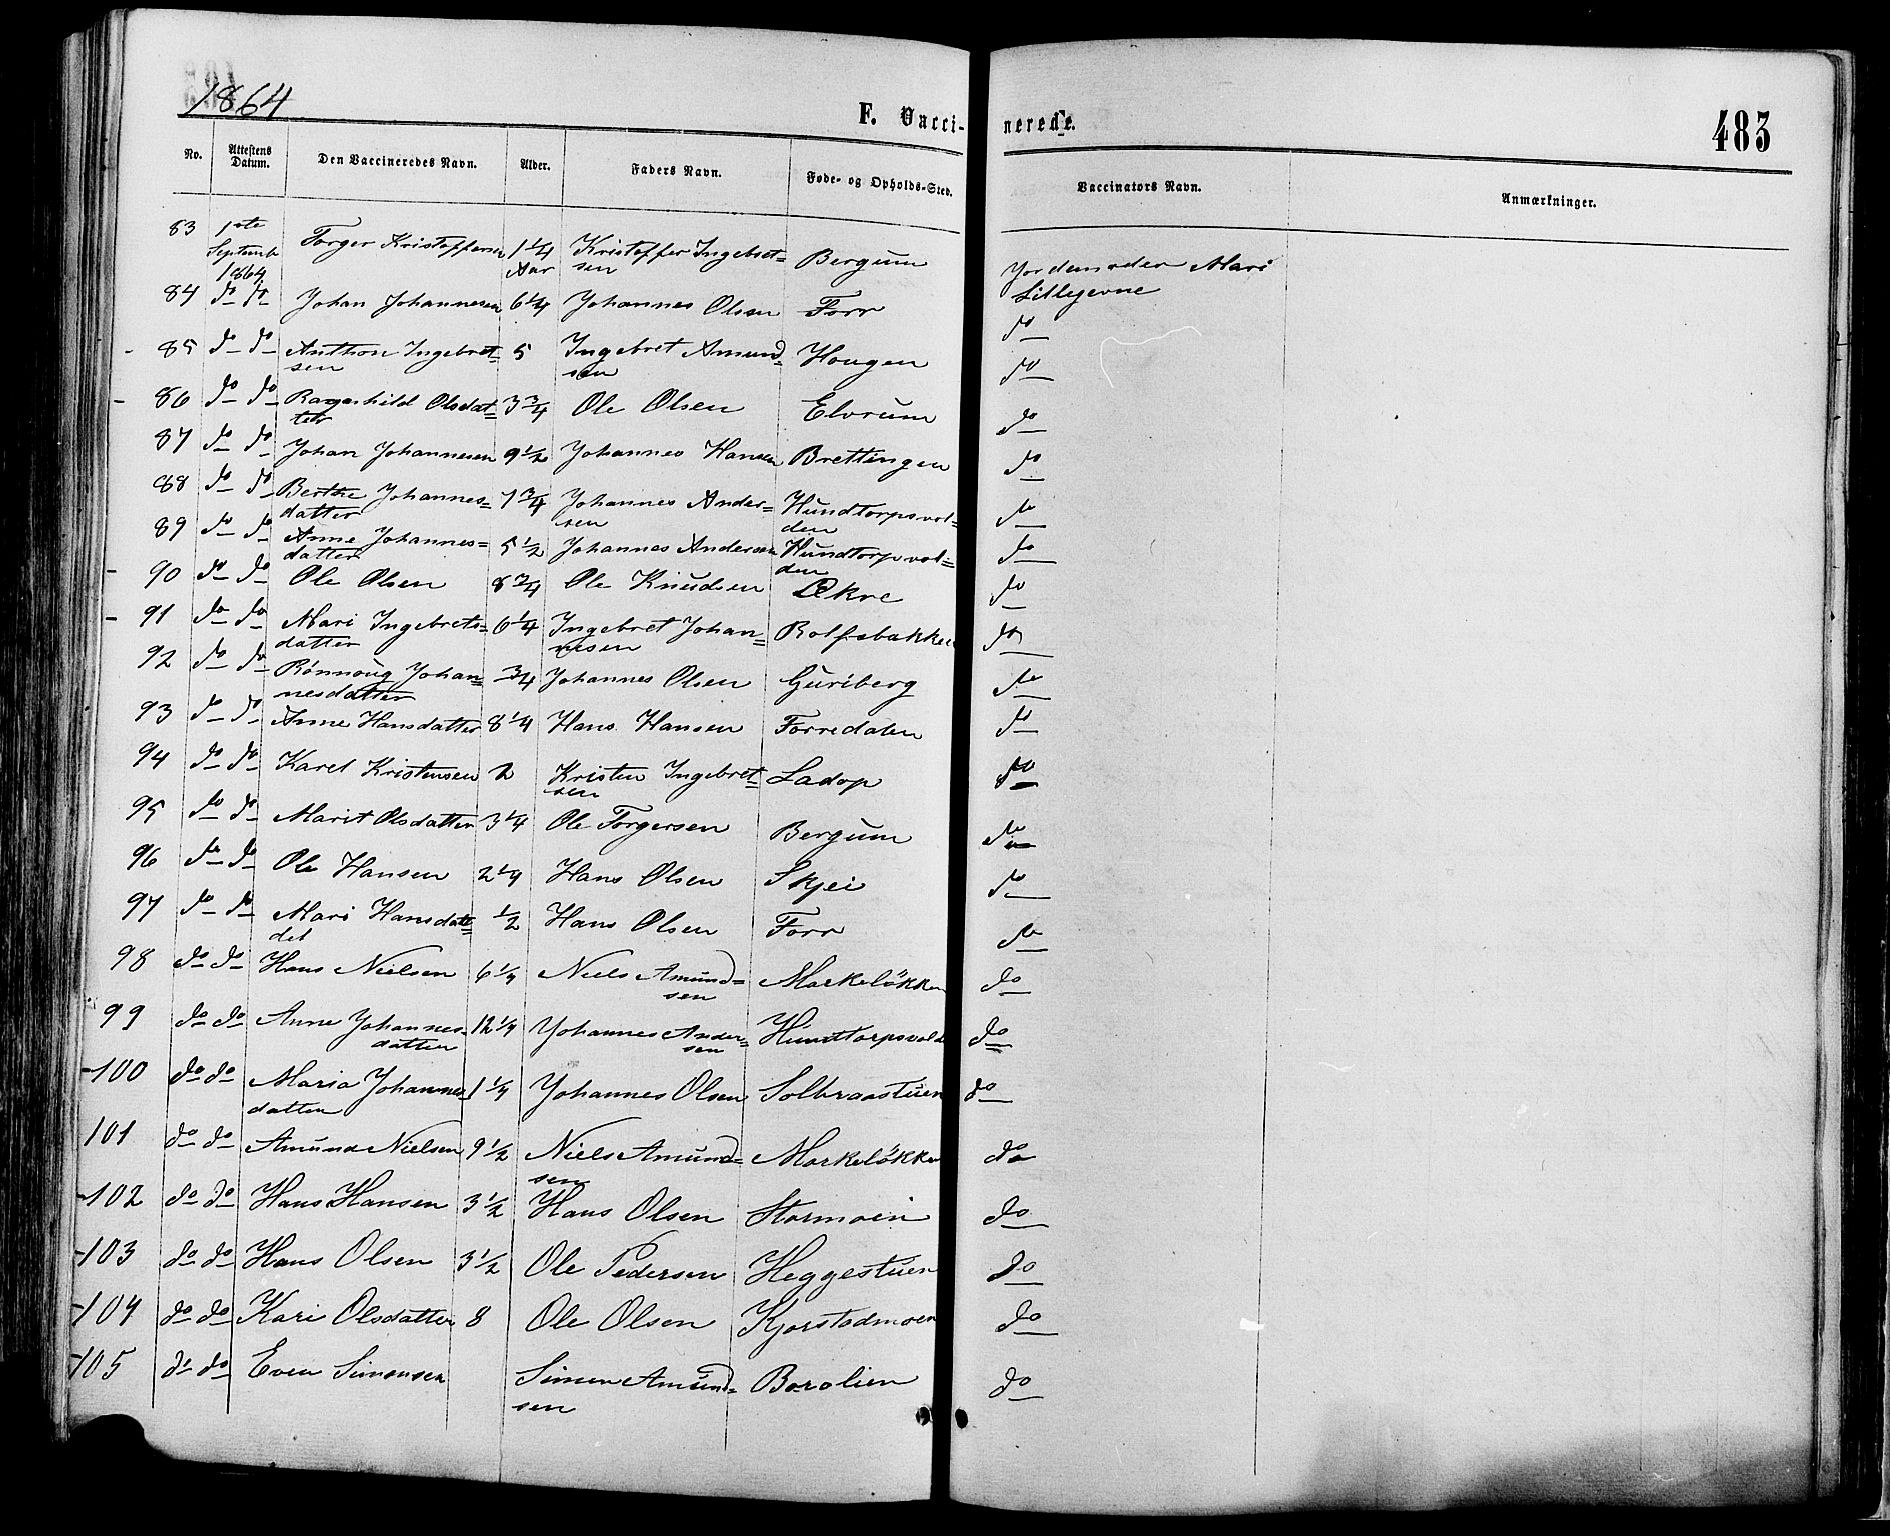 1864
F. Vaccinerede.
483
No. Attestens Datum. Den Vaccineredes Navn. Alder. Faders Navn. Føde- og Opholds-Sted. Vaccinators Navn. Anmærkninger.
83 1ste Septemb 1864 Torger Kristoffersen 1 1/4 Aar Kristoffer Ingebret= sen Bergum Jordemoder Mari Lillegevne
84 do do Johan Johannesen 6 1/4 Johannes Olsen Forr do
85 do do Anthon Ingebret= sen 5 Ingebret Amund= sen Hougen do
86 do do Ragnhild Olsdat= ter 3 3/4 Ole Olsen Elvrum do
87 do do Johan Johannesen 9 1/2 Johannes Hansen Brettingen do
88 do do Berthe Johannes= datter 7 3/4 Johannes Ander= sen Hundtorpsvol= den do
89 do do Anne Johannes= datter 5 1/2 Johannes Andersen Hundtorpvol= den do
90 do do Ole Olsen 8 3/4 Ole Knudsen Økre do
91 do do Mari Ingebrets= datter 6 1/4 Ingebret Johan= nesen Rolfsbakken do
92 do do Rönnoug Johan= nesdatter 3/4 Johannes Olsen Guriberg do
93 do do Anne Hansdatter 8 1/4 Hans Hansen Forredalen do
94 do do Karel Kristensen 2 Kristen Ingebret= sen Ladop do
95 do do Marit Olsdatter 3 1/4 Ole Torgersen Bergum do
96 do do Ole Hansen 2 1/4 Hans Olsen Skjei do
97 do do Mari Hansdatt= 1/2 Hans Olsen Forr do
98 do do Hans Nielsen 6 1/4 Niels Amund= sen Markelökken do
99 do do Anne Johannes= datter 12 1/4 Johannes Ander= sen Hundtorpsvold do
100 do do Maria Johannes= datter 1 1/4 Johannes Olsen Solbraastuen do
101 do do Amund Nielsen 9 1/2 Niels Amund= sen Markelökken do
102 do do Hans Hansen 3 1/2 Hans Olsen Stormoen do
103 do do Hans Olsen 3 1/2 Ole Pedersen Heggestuen do
104 do do Kari Olsdatter 8 Ole Olsen Kjorstadmoen do
105 do do Even Simensen Simen Amund= sen Borolien do